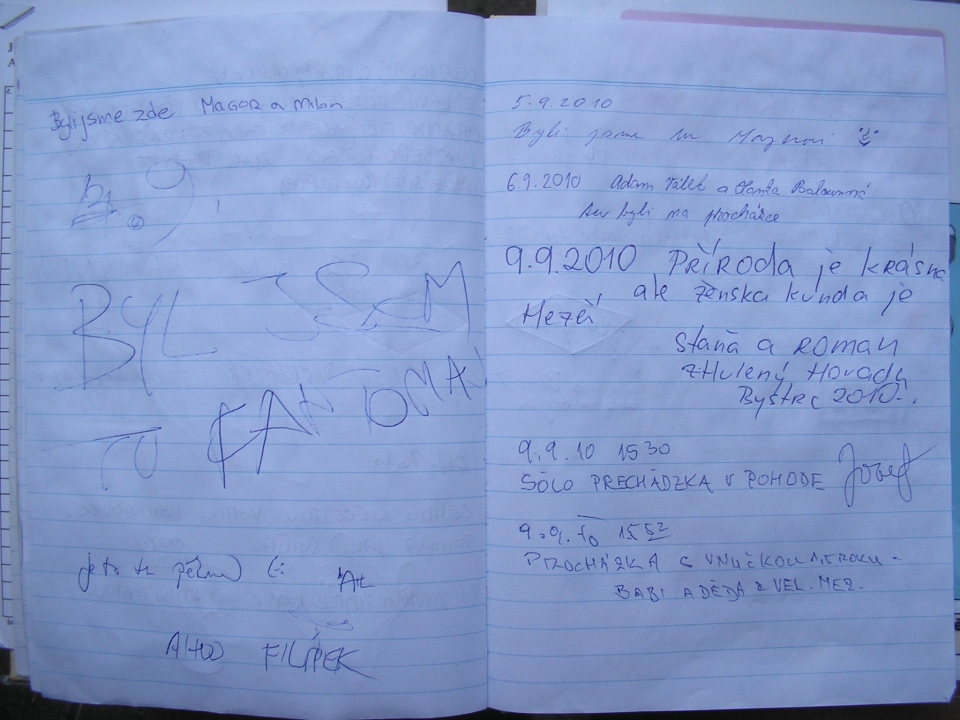 Byli jsme zde MAGOR a Milan
BYL JSEM
TO FANTOMAS
Je to tu pěkné (:
AHOJ FILÍPEK
5.9.2010
Byli jsme tu
6.9.2010 Adam a Hanka
byli na procházce
9.9.2010 PŘÍRODA je KRÁSNá
ale ženska kunda je
Hezčí
Staňa a ROMAN
ZHulený Hovada
Bystrc 2010
9.9.10 1530
SÓLO PRECHÁDZKA V POHODE Josef
9.9.10 1552
PROCHÁZKA S VNUČKOU
BABI A DĚDA Z VEL. MEZ.